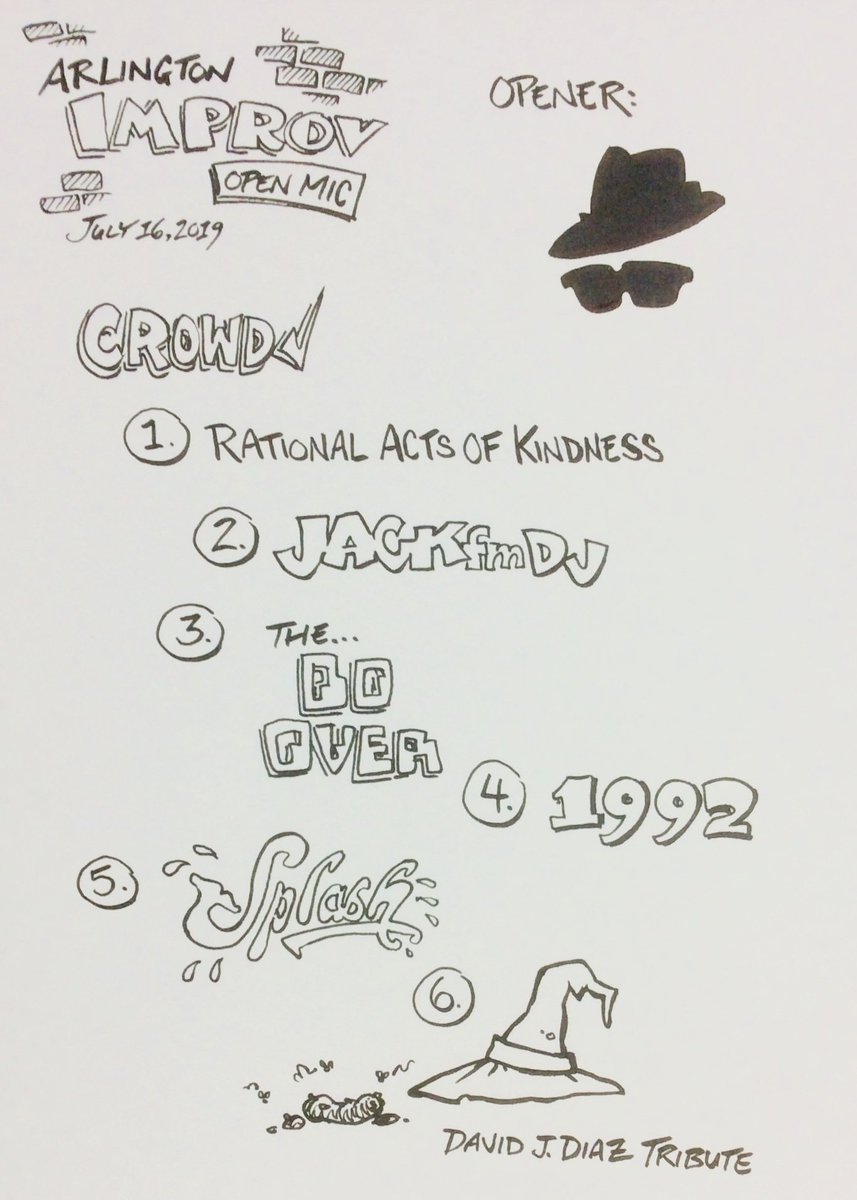 ARLINGTON
IMPROV
OPEN MIC
JULY 16, 2019
OPENER:
CROWD
1. RATIONAL ACTS OF KINDNESS
2. JACKfmDJ
3. THE...
DO
OVER
4. 1992
5. Splash
6.
DAVID J. DIAZ TRIBUTE